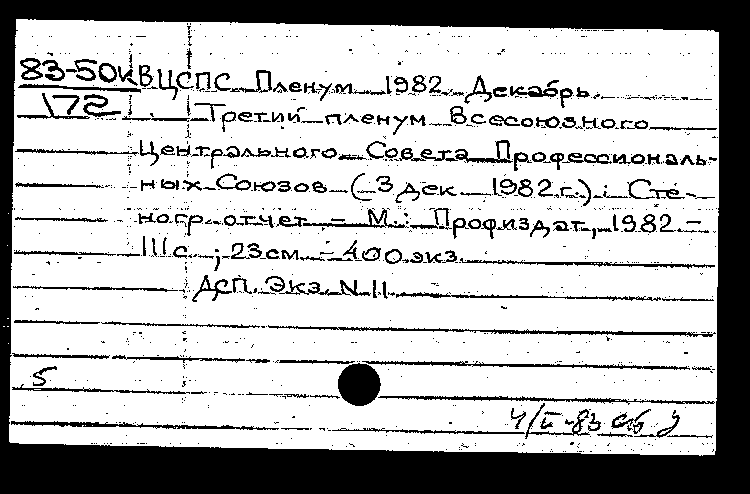 83-50к ВЦСПС Пленум 1982. Декабрь.
172 Третий пленум Всесоюзного
Центрального Совета Профессиональ-
ных Союзов (3 дек. 1982 г.): Сте-
ногр. отчет. – М.: Профиздат, 1982. –
111 с ; 23 см – 400 экз.
ДСП. Экз. N 11
5
4/II-83